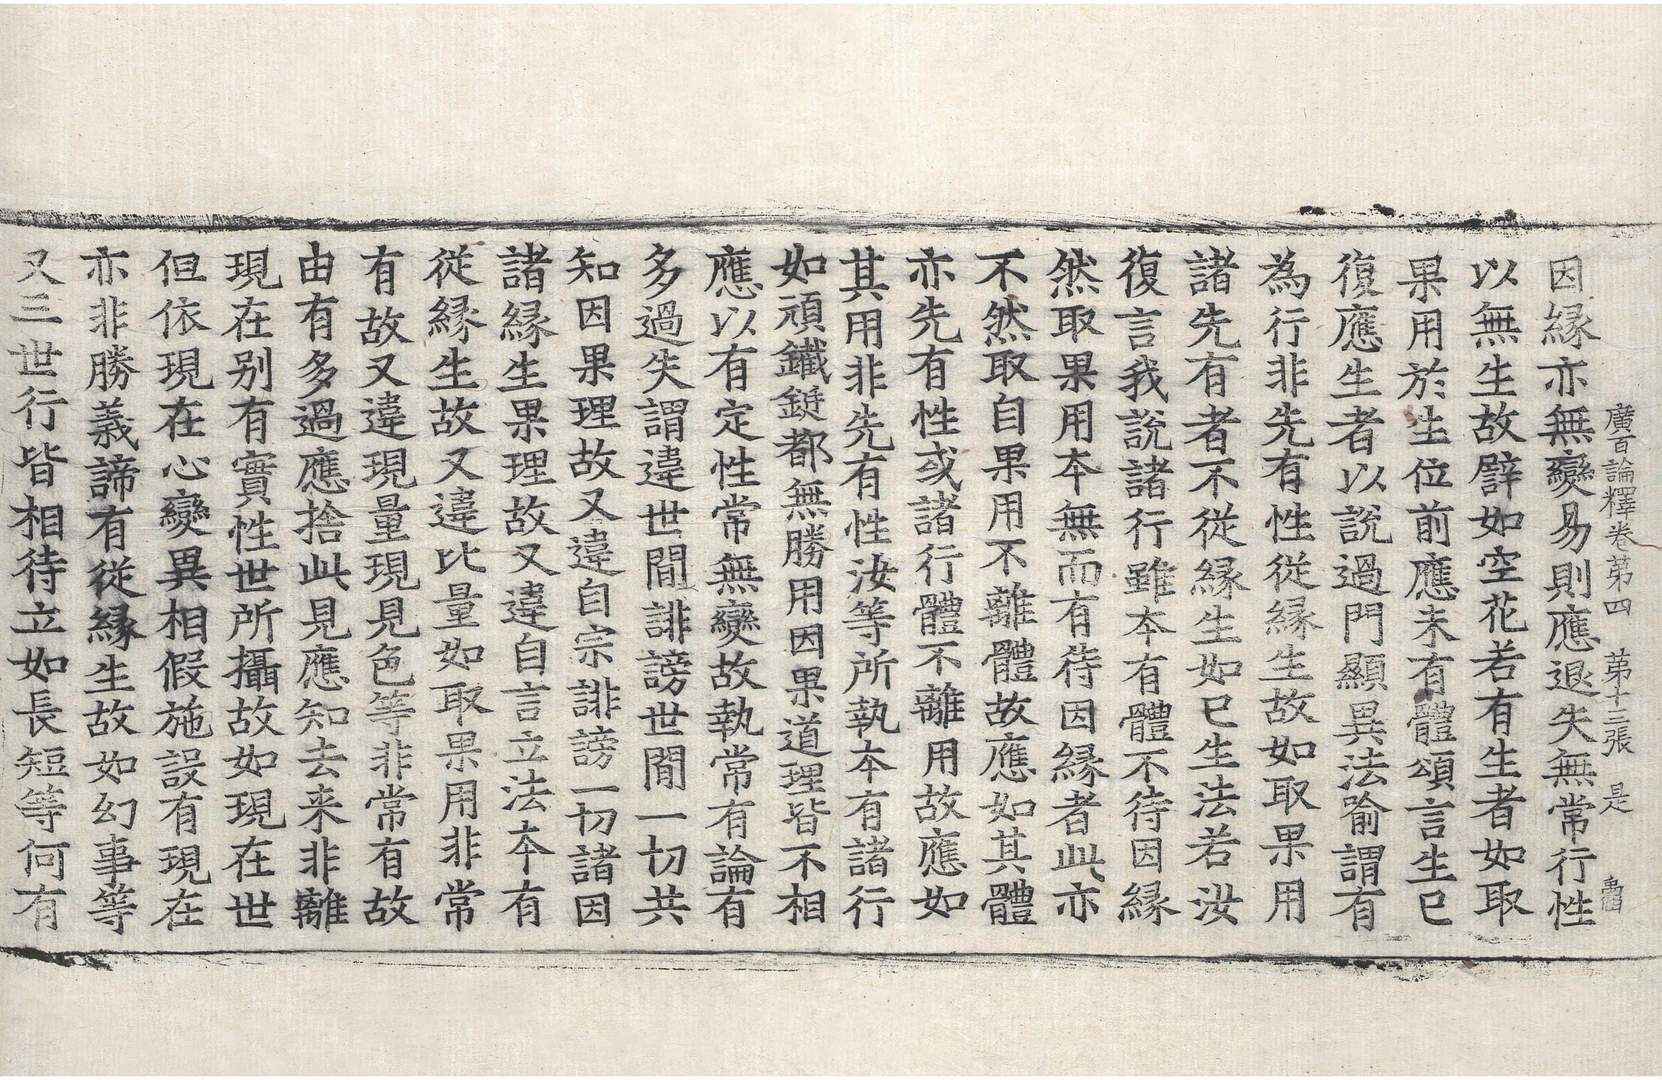 廣百論釋卷第四　第十三張　是
因緣亦無變易則應退失無常行性
以無生故譬如空花若有生者如取
果用於生位前應未有體頌言生已
復應生者以說過門顯異法喻謂有
為行非先有性從緣生故如取果用
諸先有者不從緣生如已生法若汝
復言我說諸行雖本有體不待因緣
然取果用本無而有待因緣者此亦
不然取自果用不離體故應如其體
亦先有性或諸行體不離用故應如
其用非先有性汝等所執本有諸行
如頑鐵鋌都無勝用因果道理皆不相
應以有定性常無變故執常有論有
多過失謂違世間誹謗世間一切共
知因果理故又違自宗誹謗一切諸因
諸緣生果理故又違自言立法本有
從緣生故又違比量如取果用非常
有故又違現量現見色等非常有故
由有多過應捨此見應知去来非離
現在別有實性世所攝故如現在世
但依現在心變異相假施設有現在
亦非勝義諦有從緣生故如幻事等
又三世行皆相待立如長短等何有